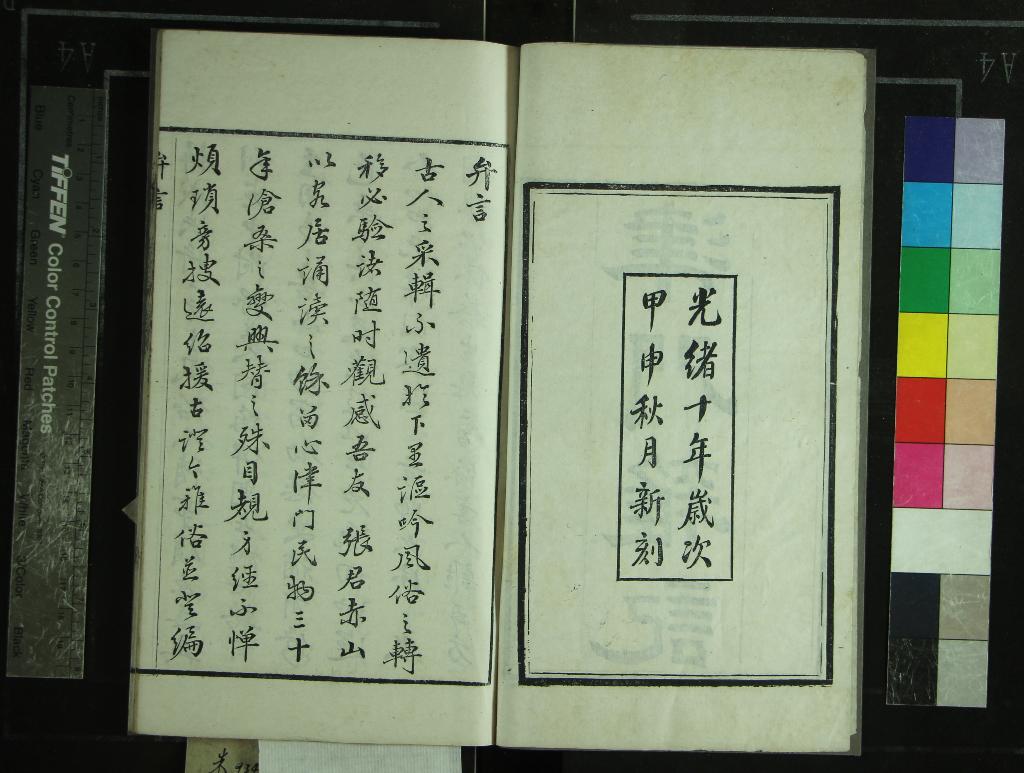 光緒十年歲次
甲申秋月新刻
弁言
古人之采輯不遺於下里謳吟風俗之轉
移必驗諸随时觀感吾友 張君赤山
以家居誦讀之餘留心津门民物三十
年滄桑之變興替之殊目規方經不惮
煩瑣旁搜遠紹援古證今雅俗並登編
弁言
A4
A4
TIFFEN Color Control Patches
Centimetres
Blue
Cyan
Green
Yellow
Red
Magenta
White
3/Color
Black